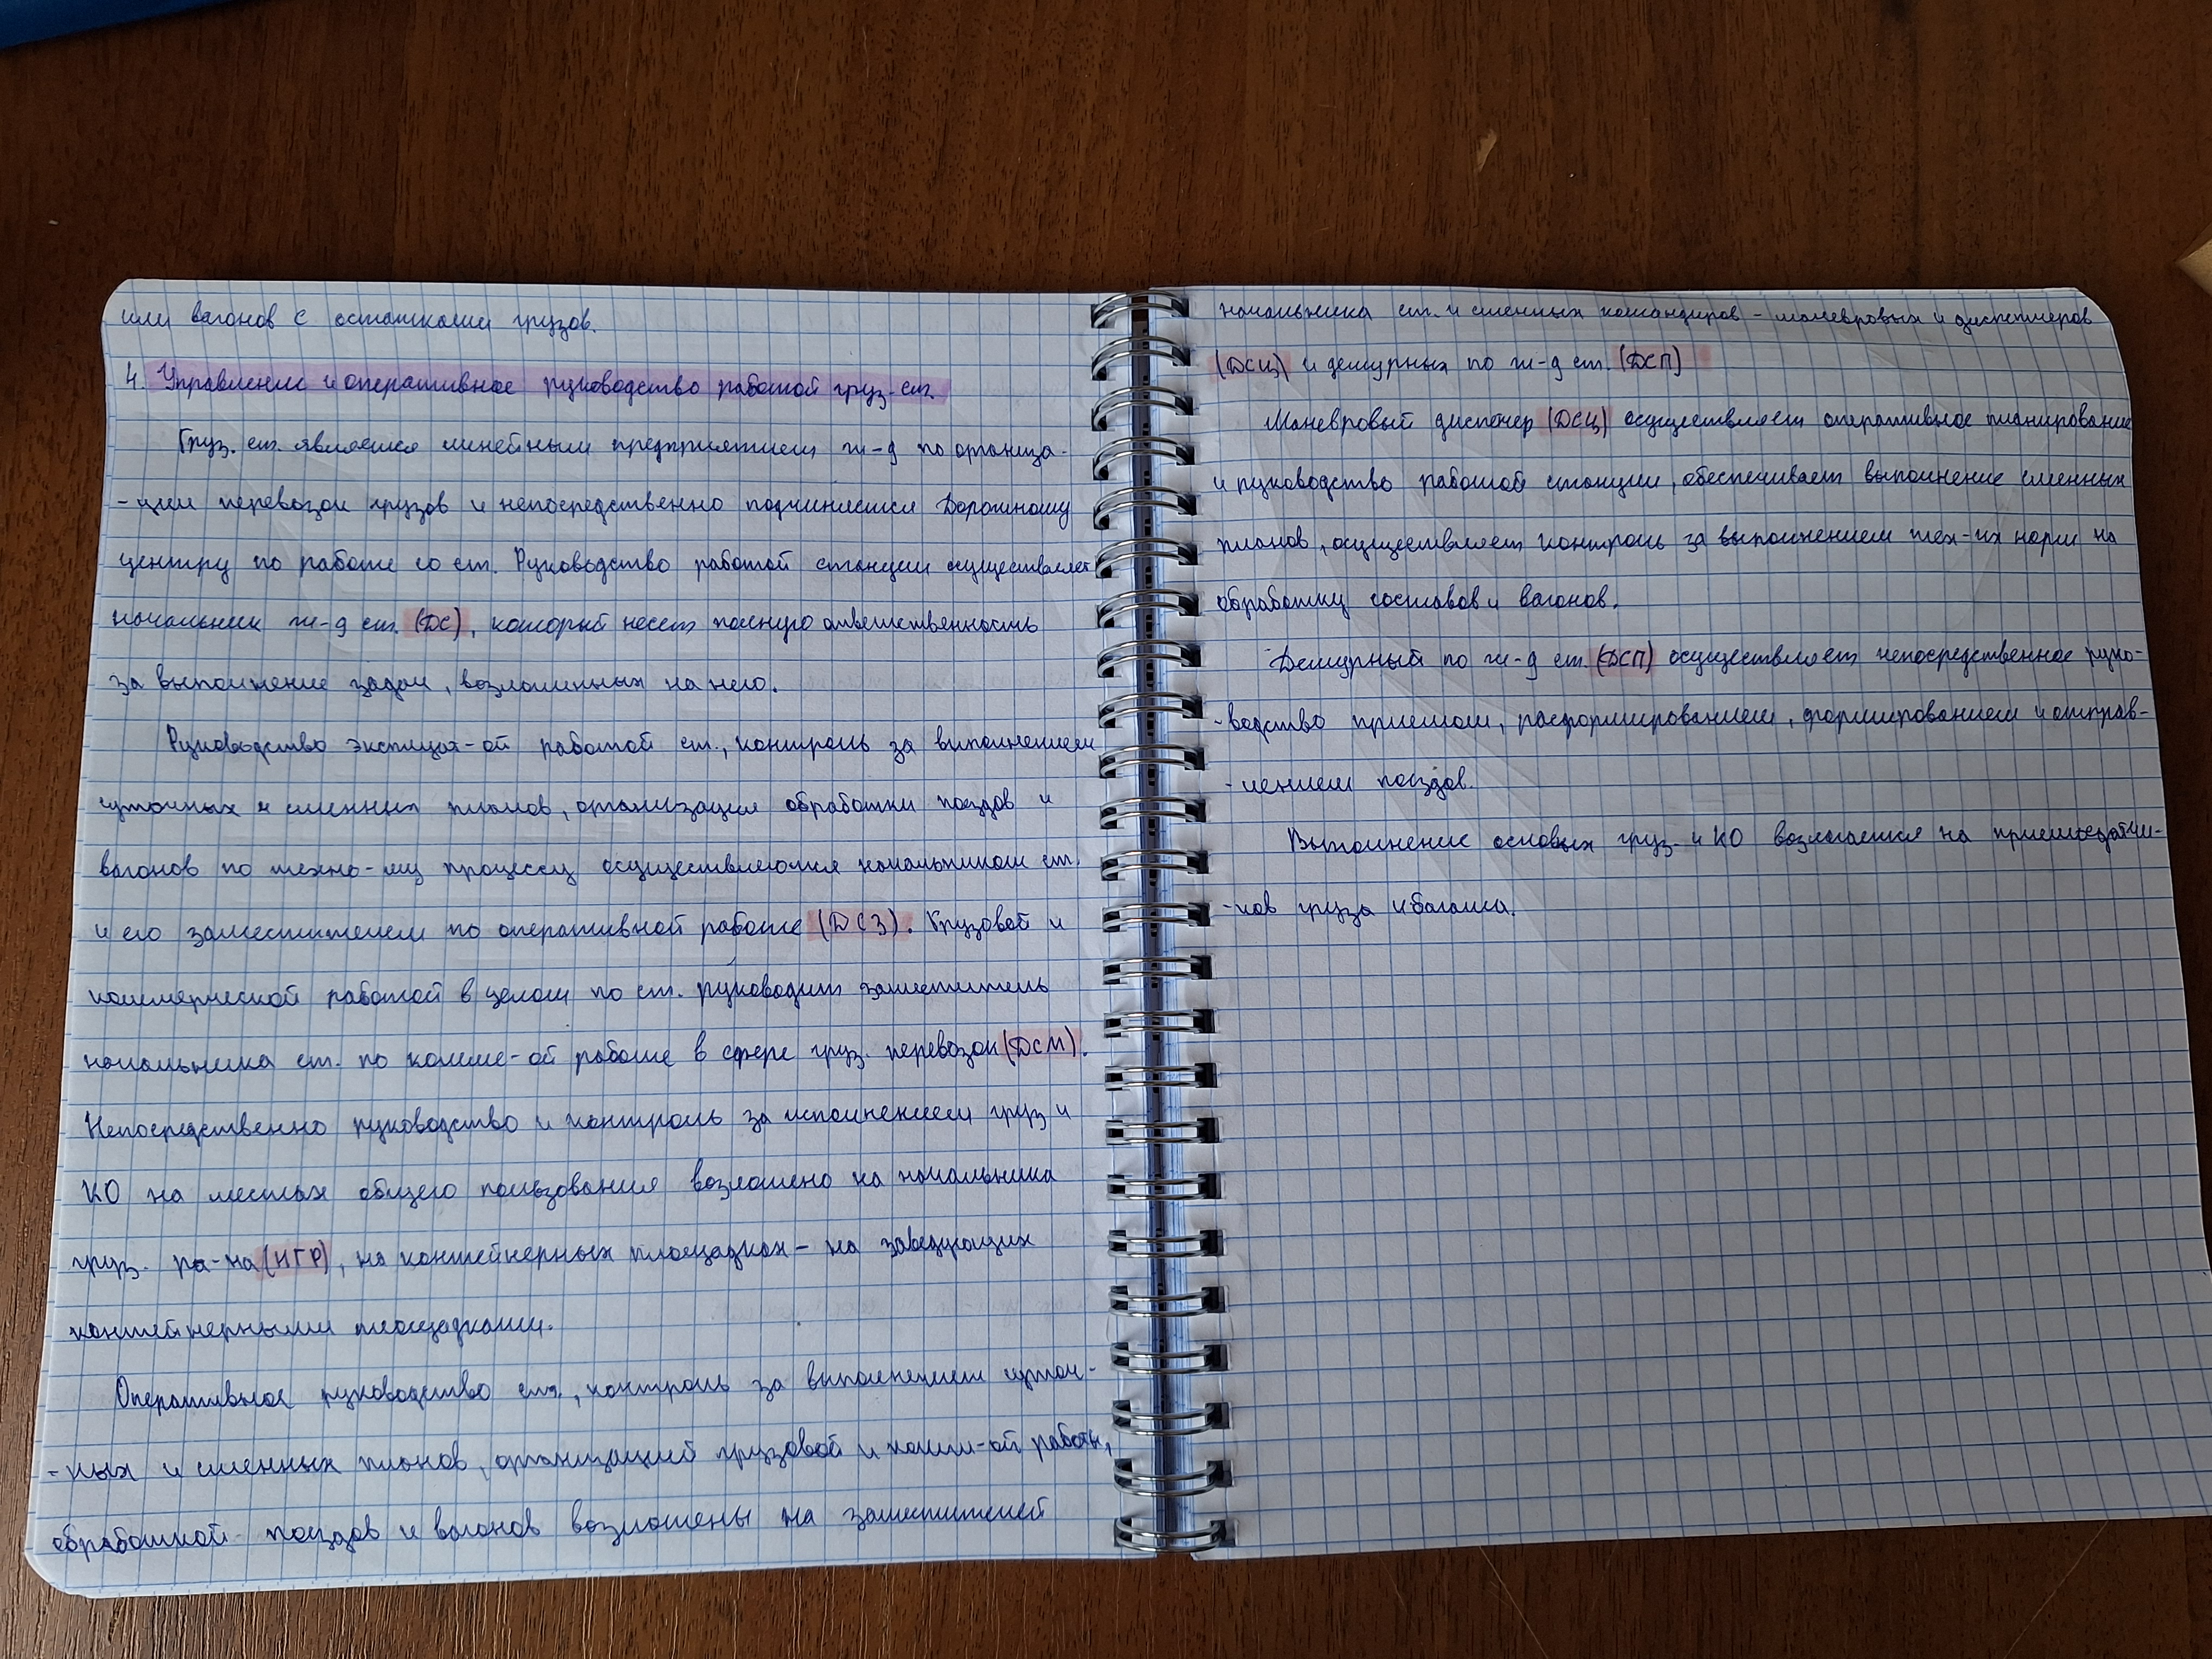 или вагонов с остатками грузов.
4. Управление и оперативное руководство работой груз. ст.
Груз. ст. является линейным предприятием ж-д по организа-
-ции перевозок грузов и непосредственно подчиняется Дорожному
центру по работе со ст. Руководство работой станции осуществляет
начальник ж-д ст. (ДС), который несет полную ответственность
за выполнение задач, возложенных на него.
Руководство эксплуат-ой работой ст., контроль за выполнением
суточных и сменных планов, организация обработки поездов и
вагонов по техно-му процессу осуществляются начальником ст.
и его заместителем по оперативной работе (ДСЗ). Грузовой и
коммерческой работой в целом по ст. руководит заместитель
начальника ст. по комме-ой работе в сфере груз. перевозок (ДСМ).
Непосредственно руководство и контроль за исполнением груз и
КО на местах общего пользования возложено на начальника
груз. ра-на (НГР), на контейнерных площадках - на заведующих
контейнерными площадками.
Оперативное руководство ст., контроль за выполнением суточ-
-ных и сменных планов, организацией грузовой и комм-ой работы,
обработкой поездов и вагонов возложены на заместителей
начальника ст. и сменных командиров - маневровых и диспетчеров
(ДСЦ) и дежурных по ж-д ст. (ДСП)
Маневровый диспечер (ДСЦ) осуществляет оперативное планирование
и руководство работой станции, обеспечивает выполнение сменных
планов, осуществляет контроль за выполнением тех-их норм на
обработку составов и вагонов.
Дежурный по ж-д ст. (ДСП) осуществляет непосредственное руко-
-водство приемом, расформированием, формированием и отправ-
-лением поездов.
Выполнение основых груз. и КО возлагается на приемосдатчи-
-ков груза и багажа.